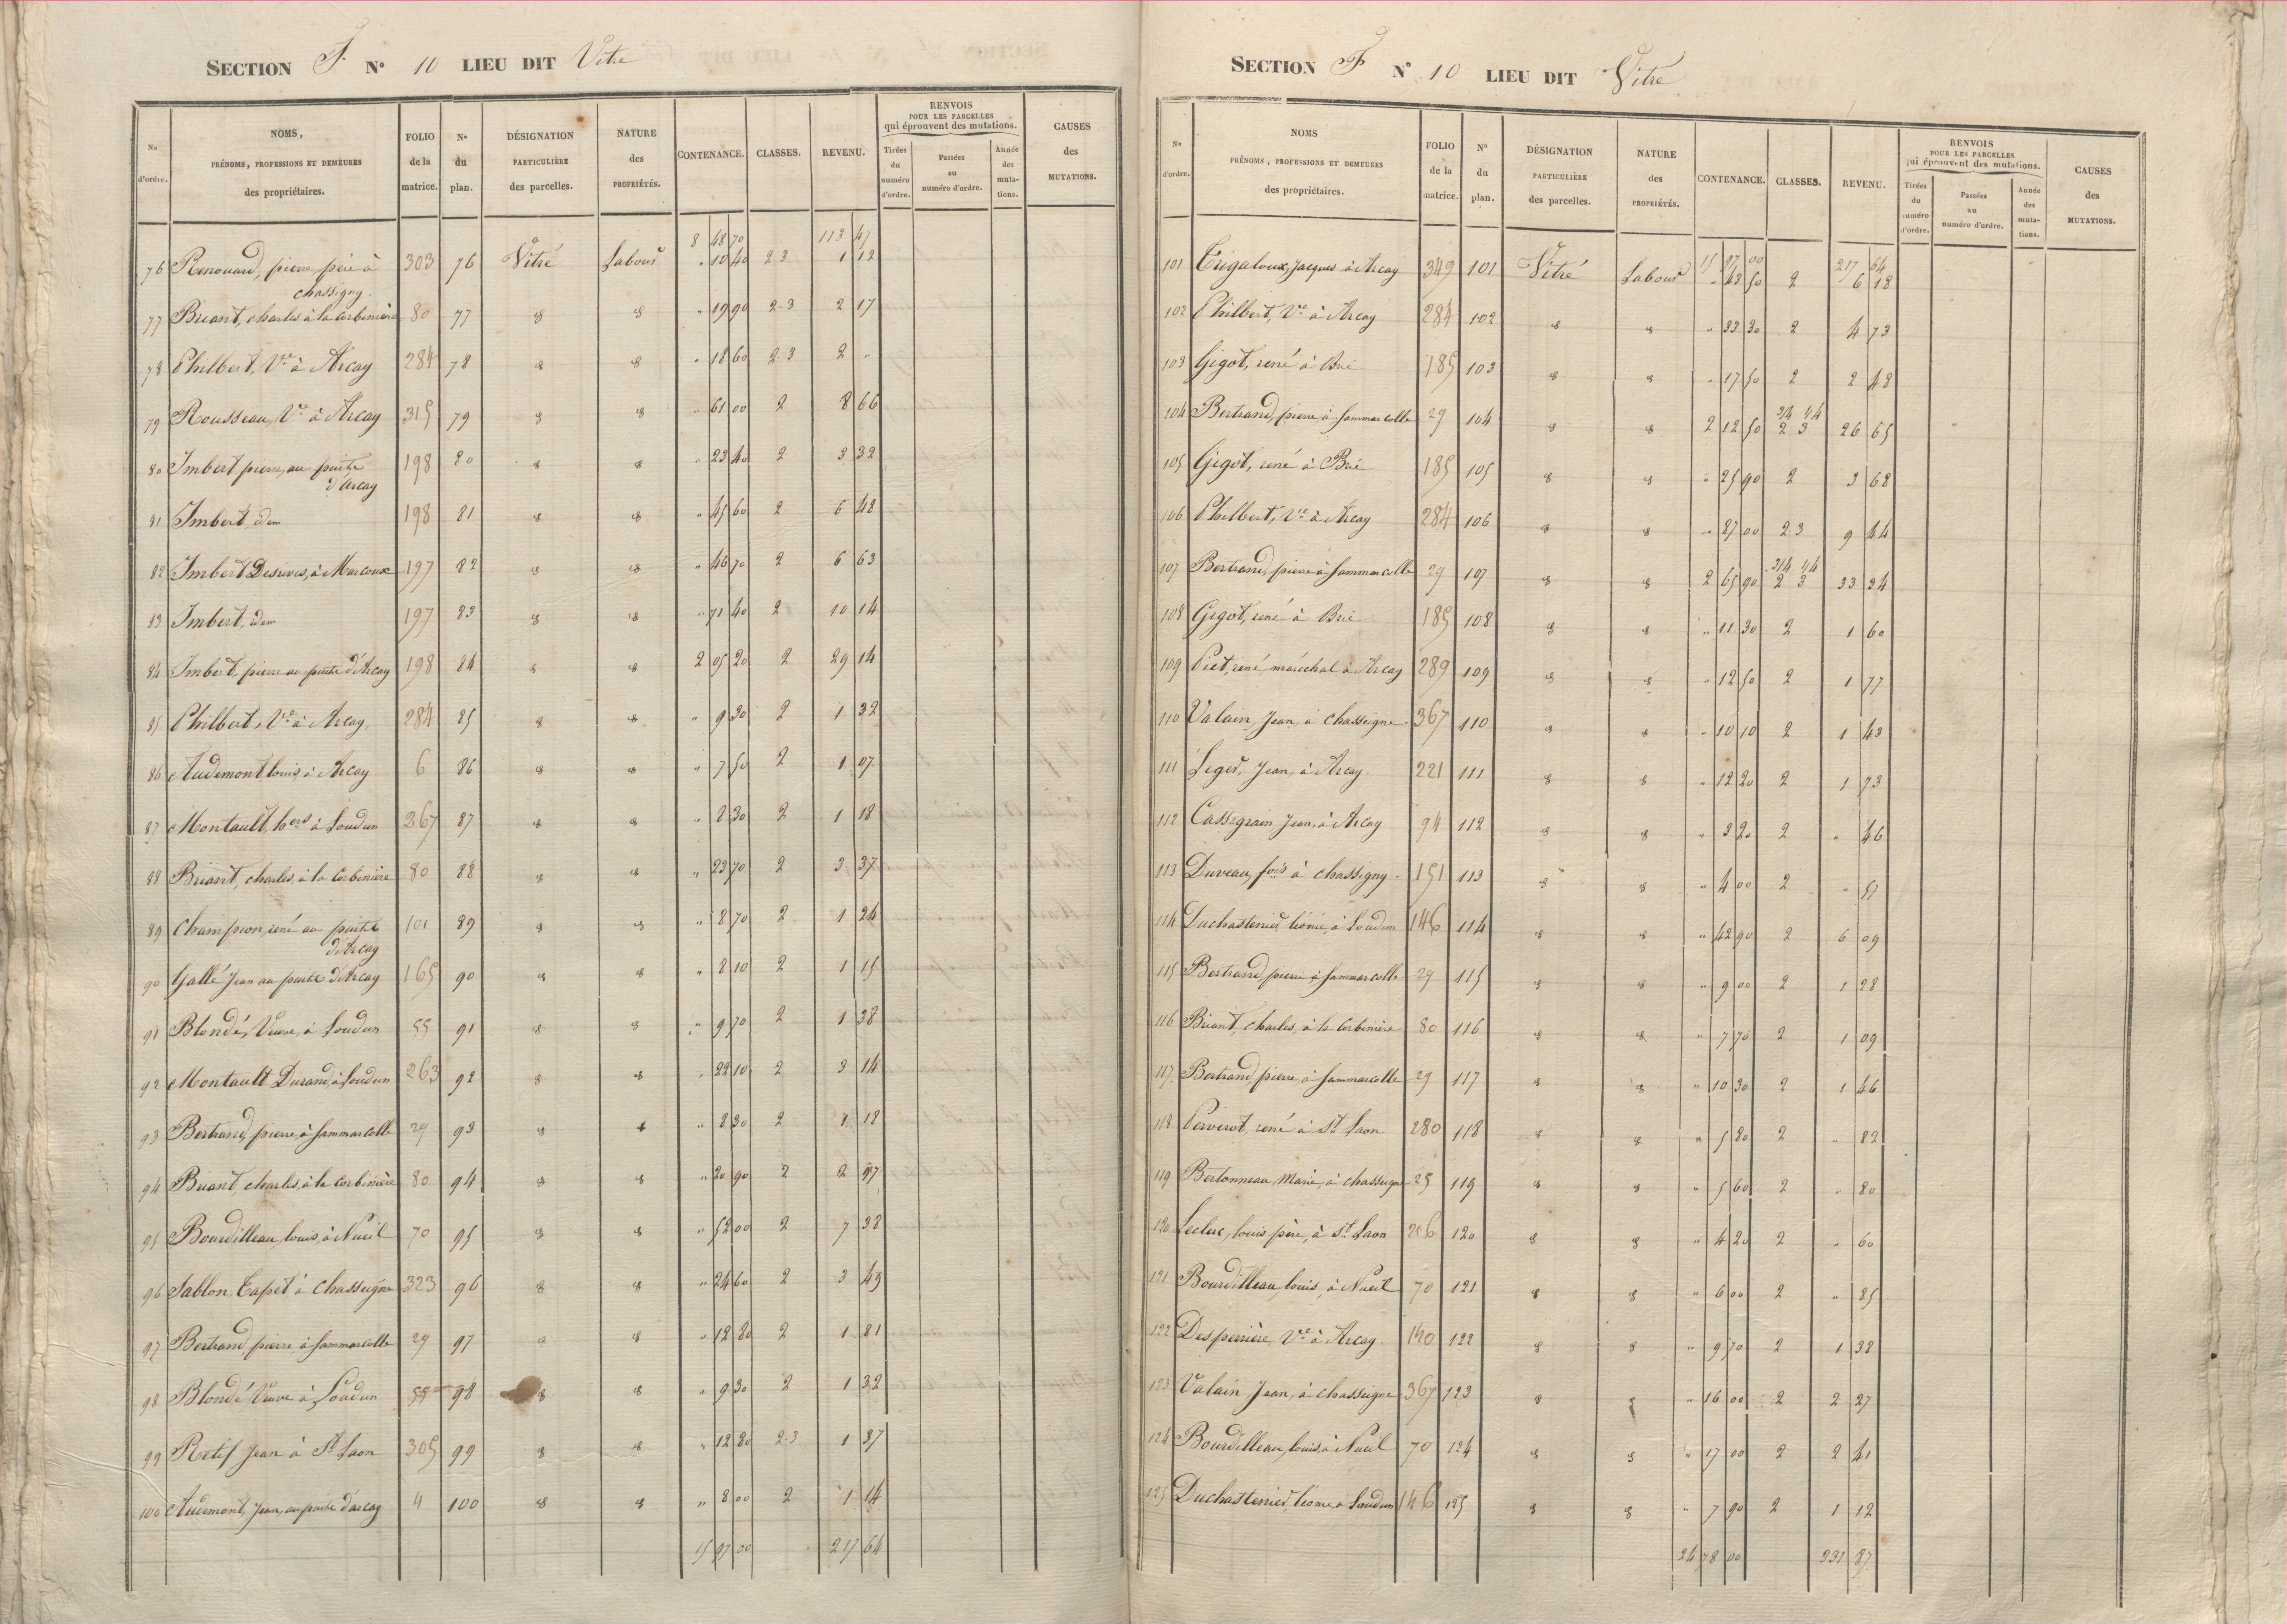 SECTION F. N° 10 LIEU DIT Vitré
N° d'ordre. NOMS, PRÉNOMS, PROFESSIONS ET DEMEURES des propriétaires. FOLIO de la matrice. N° du plan. DÉSIGNATION PARTICULIÈRE des parcelles. NATURE des PROPRIÉTÉS. CONTENANCE. CLASSES. REVENU. RENVOIS POUR LES PARCELLES qui éprouvent des mutations. Tirées du numéro d'ordre. Passées au numéro d'ordre. Année des mutations. CAUSES des MUTATIONS.
8 48 70 113 47
76 Renouard, pierre père à 303 76 Vitré Labour " 10 40 2 3 1 12
chassigny.
77 Briant, charles à la Corbinière 80 77 " " " 19 90 2-3 2 17
78 Philbert, Ve à Arcay 284 78 " " " 18 60 2 3 2 "
79 Rousseau, Ve à Arcay 315 79 " " " 61 00 2 8 66
80 Imbert pierre, au puits 198 80 " " " 23 40 2 3 32
d'Arcay
81 Imbert, idem 198 81 " " " 45 60 2 6 48
82 Imbert Desrives, à Marcoux 197 82 " " " 46 70 2 6 63
83 Imbert, idem 197 83 " " " 71 40 2 10 14
84 Imbert, pierre au puits d'Arcay 198 84 " " 2 05 20 2 29 14
85 Philbert, Ve à Arcay, 284 85 " " " 9 30 2 1 32
86 Audemont louis, à Arcay 6 86 " " " 7 50 2 1 07
87 Montault, hers à Loudun 267 87 " " " 8 30 2 1 18
88 Briant, charles, à la Corbinière 80 88 " " " 23 70 2 3 37
89 Champion, rené au puits 101 89 " " " 8 70 2 1 24
d'Arcay
90 Gallé Jean au puits d'Arcay 165 90 " " " 8 10 2 1 15
91 Blondé, Veuve, à Loudun 55 91 " " " 9 70 2 1 38
92 Montault Durand à Loudun 263 92 " " " 22 10 2 3 14
93 Bertrand, pierre à Sammarcolle 29 93 " " " 8 30 2 1 18
94 Briant, charles, à la Corbinière 80 94 " " " 20 90 2 2 97
95 Bourdilleau, louis, à Nueil 70 95 " " " 52 00 2 7 38
96 Sablon Tapet à Chasseigne 323 96 " " " 24 60 2 3 49
97 Bertrand, pierre à Sammarcolle 29 97 " " " 12 80 2 1 81
98 Blondé Veuve à Loudun 55 98 " " " 9 30 2 1 32
99 Rétif Jean à St Laon 305 99 " " " 12 80 2-3 1 37
100 Audemont, Jean, au puits d'arcay 4 100 " " " 8 00 2 1 14
15 97 00 217 64
SECTION F N° 10 LIEU DIT Vitré
N° d'ordre. NOMS PRÉNOMS, PROFESSIONS ET DEMEURES des propriétaires. FOLIO de la matrice. N° du plan. DÉSIGNATION PARTICULIÈRE des parcelles. NATURE des PROPRIÉTÉS. CONTENANCE. CLASSES. REVENU. RENVOIS POUR LES PARCELLES qui éprouvent des mutations. Tirées du numéro d'ordre. Passées au numéro d'ordre. Année des mutations. CAUSES des MUTATIONS.
15 97 00 217 64
101 Trigaloux, Jacques à Arcay 349 101 Vitré Labour " 43 50 2 6 18
102 Philbert, Ve à Arcay 284 102 " " " 33 30 2 4 73
103 Gigot, rené à Brie 185 103 " " " 17 50 2 2 48
104 Bertrand, pierre à Sammarcolle 29 104 " " 2 12 50 3/4 2 1/4 3 26 65
105 Gigot, rené à Brie 185 105 " " " 25 90 2 3 68
106 Philbert, Ve à Arcay 284 106 " " " 87 00 2 3 9 44
107 Bertrand, pierre à Sammarcolle 29 107 " " 2 65 90 3/4 2 1/4 3 33 34
108 Gigot, rené à Brie 185 108 " " " 11 30 2 1 60
109 Piet, rené, maréchal à Arcay 289 109 " " " 12 50 2 1 77
110 Valain, Jean, à chasseigne 367 110 " " " 10 10 2 1 43
111 Leger, Jean, à Arcay 221 111 " " " 12 20 2 1 73
112 Cassegrain Jean, à Arcay 94 112 " " " 3 20 2 " 46
113 Duveau, fois à chassigny. 151 113 " " " 4 00 2 " 57
114 Duchastenier, léonie, à Loudun 146 114 " " " 42 90 2 6 09
115 Bertrand, pierre à Sammarcolle 29 115 " " " 9 00 2 1 28
116 Briant, charles, à la Corbinière 80 116 " " " 7 70 2 1 09
117 Bertrand, pierre, à Sammarcolle 29 117 " " " 10 30 2 1 46
118 Perverot, rené à St Laon 280 118 " " " 5 80 2 " 82
119 Bertonneau, Marie, à chasseigne 25 119 " " " 5 60 2 " 80
120 Leclerc, louis père, à St Laon 206 120 " " " 4 20 2 " 60
121 Bourdilleau, louis, à Nueil 70 121 " " " 6 00 2 " 85
122 Desperrière Ve à Arcay 140 122 " " " 9 70 2 1 38
123 Valain, Jean, à chasseigne 367 123 " " " 16 00 2 2 27
124 Bourdilleau, louis, à Nueil 70 124 " " " 17 00 2 2 41
125 Duchastenier, léonie, à Loudun 146 125 " " " 7 90 2 1 12
24 78 00 331 87